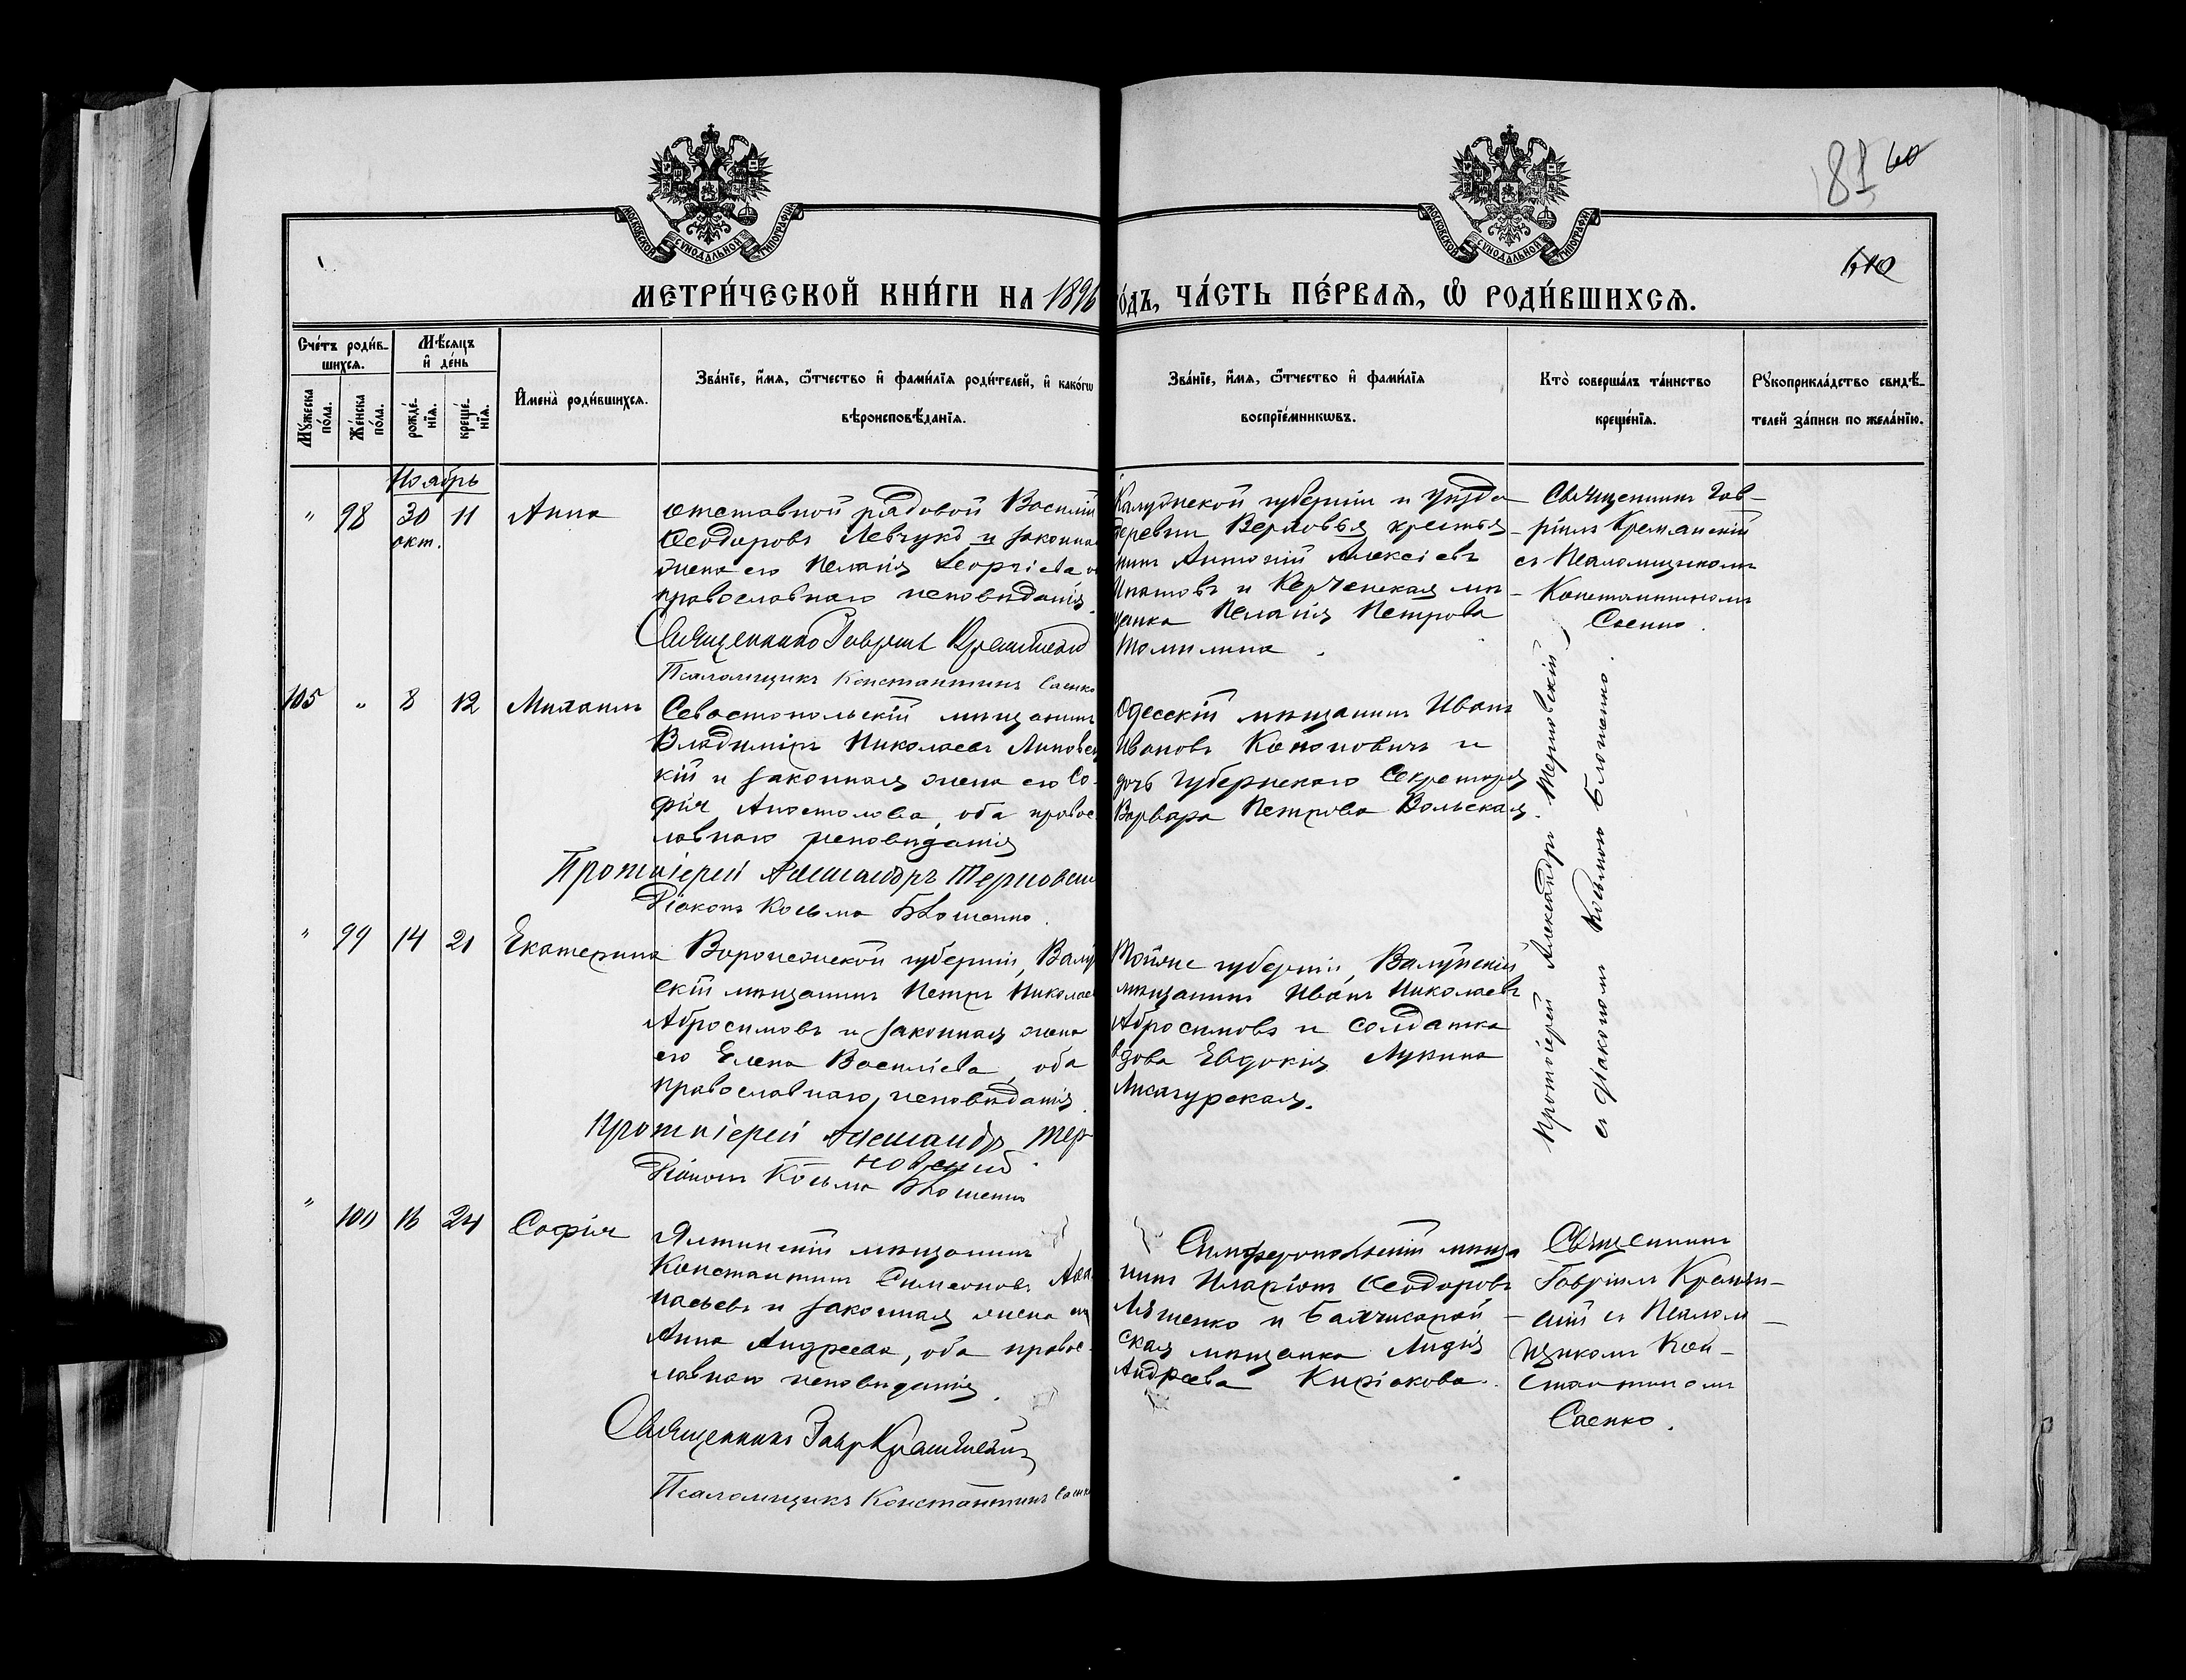 81 60
МОСКОВСКОЙ СѴНОДАЛЬНОЙ ТИПОГРАФІИ
МОСКОВСКОЙ СѴНОДАЛЬНОЙ ТИПОГРАФІИ
МЕТРИ́ЧЕСКОЙ КНИ́ГИ НА 1896
О́ДЪ, ЧА́СТЬ ПЕ́РВАѦ, Ѡ҆ РОДИ́ВШИХСѦ.
Сче́тъ роди́в-
шихсѧ.
Мꙋ́жеска по́ла.
Же́нска по́ла.
Мѣ́сѧцъ
и҆ де́нь
рожде́-
нїѧ.
креще́-
нїѧ.
И҆мена̀ роди́вшихсѧ.
Зва́нїе, и҆́мѧ, ѻ҆́тчество и҆ фами́лїѧ роди́телей, и҆ како́гѡ
вѣроисповѣ́данїѧ.
Зва́нїе, и҆́мѧ, ѻ҆́тчество и҆ фами́лїѧ
воспрїе́мникѡвъ.
Кто̀ соверша́лъ та́инство
креще́нїѧ.
Рꙋкоприкла́дство свидѣ́-
телей за́писи по жела́нїю.
Ноябрь
" 98 30 11 Анна
окт.
отставной рядовой Василій
Ѳеодоровъ Левчукъ и законная
жена его Пелагія Георгіева
православнаго исповѣданія.
Священникъ Гавріилъ
Псаломщикъ Константинъ Саенко
Калужской губерніи и уѣзда
деревни Верховья крестья-
нинъ Антоній Алексіевъ
Игнатовъ и Керченская мѣ-
щанка Пелагія Петрова
Томилина.
Священникъ Гав-
ріилъ Крамянскій
съ Псаломщикомъ
Константиномъ
Саенко.
105 " 8 12 Михаилъ
Севастопольскій мѣщанинъ
Владиміръ Николаевъ Липовс
кій и законная жена его Со-
фія Апостолова, оба правос
лавнаго исповѣданія
Протоіерей Александръ Терновскій
Діаконъ Косьма Блошенко.
Одесскій мѣщанинъ Иванъ
Ивановъ Кононовичъ и
дочь Губернскаго Секретаря
Варвара Петрова Вольская
Протоіерей Александръ Терновскій
съ діакономъ Косьмою Блошенко.
" 99 14 21 Екатерина
Воронежской губерніи, Валуй
скій мѣщанинъ Петръ Николаевъ
Абросимовъ и законная жена
его Елена Васильева, оба
православнаго исповѣданія.
Протоіерей Александръ Тер
новскій.
Діаконъ Косьма Блошенко
Той же губерніи, Валуйскій
мѣщанинъ Иванъ Николаевъ
Абросимовъ и солдатка
вдова Евдокія Лукина
Лисагурская.
" 100 16 24 Софія
Ялтинскій мѣщанинъ
Константинъ Симеоновъ Аѳа
насьевъ и законная жена его
Анна Андреева, оба правос-
лавнаго исповѣданія.
Священникъ Гавр
Псаломщикъ Константинъ Саенко
Симферопольскій мѣща
нинъ Иларіонъ Ѳеодоровъ
Ляшенко и Бахчисарай-
ская мѣщанка Лидія
Андреева Киріакова.
Священникъ
Гавріилъ Крамян-
скій съ Псалом-
щикомъ Кон-
стантиномъ
Саенко.